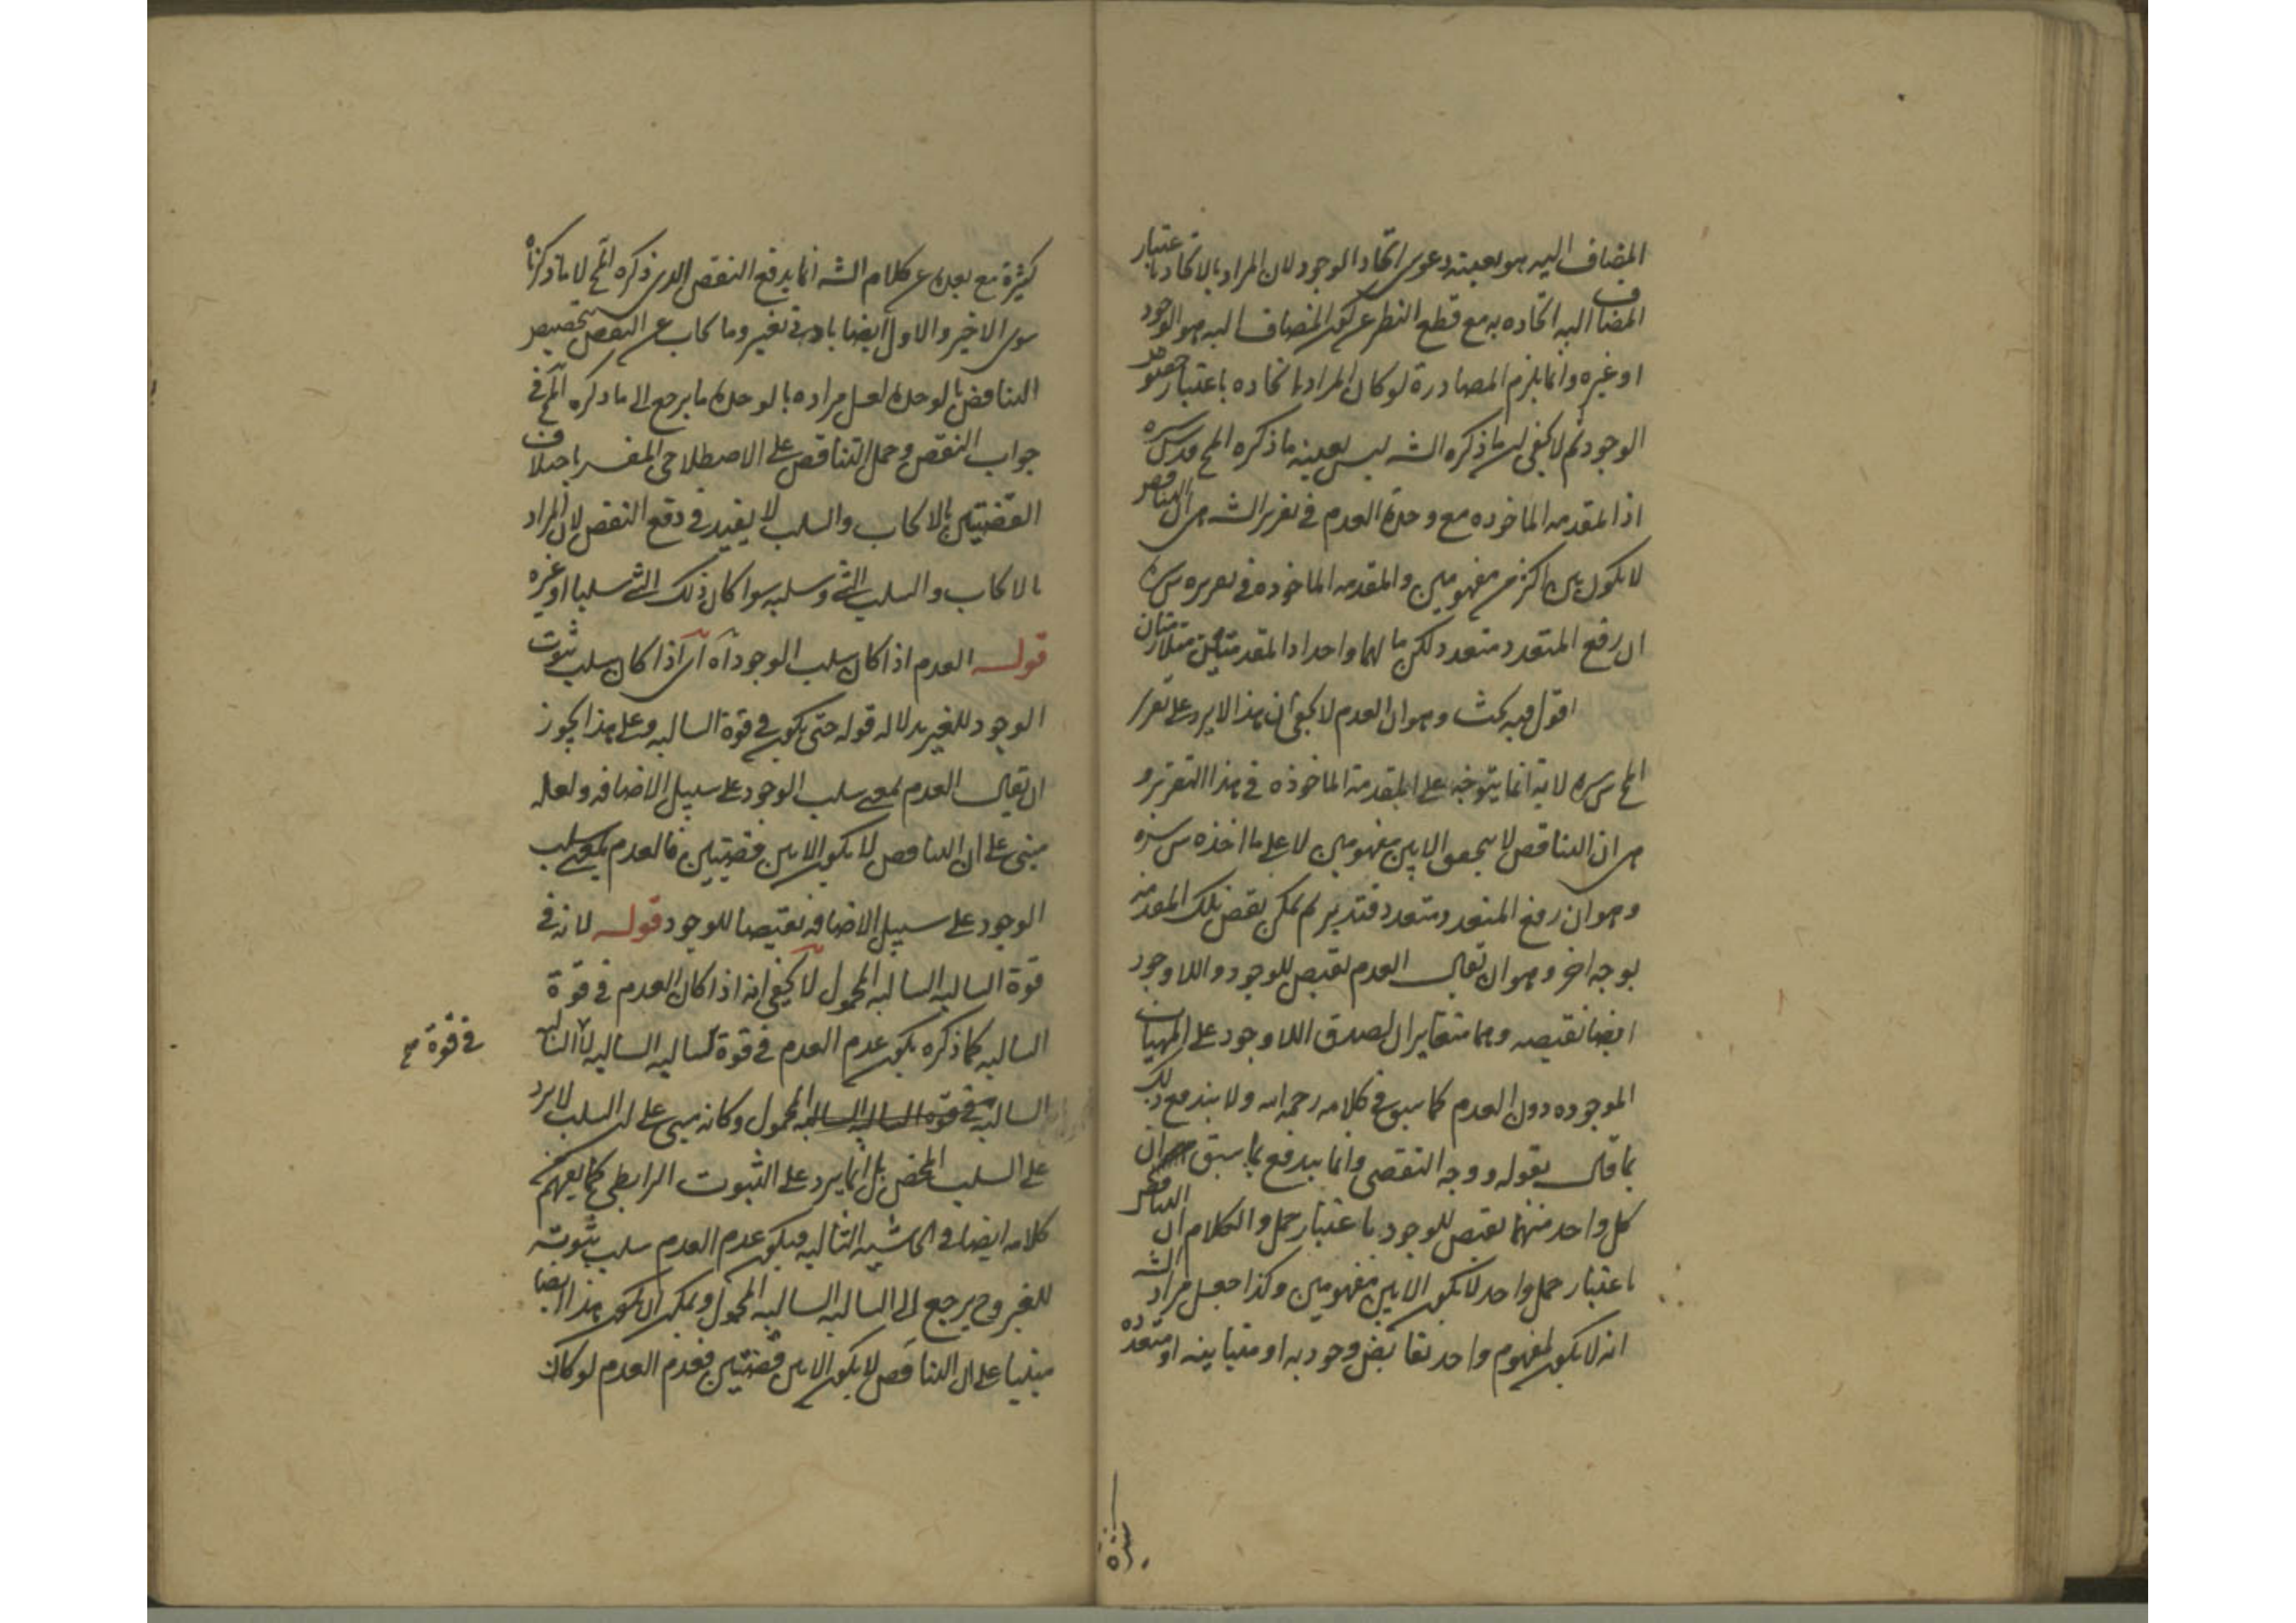 المضاف اليه هو بعينه دعوى اتحاد الوجود لان المراد بالاتحاد باعتبار
المضاف اليه اتحاده به مع قطع النظر عن كون المضاف اليه هو الوجود
او غيره وانما يلزم المصادرة لو كان المراد اتحاده باعتبار خصوص
الوجود ثم لا يخفى ان ما ذكره الشه ليس بعينه ما ذكره المح قدس سره
اذ المقدمه الماخوده مع وحدة العدم في تقرير الشه هى ان التناقض
لا يكون بين اكثر من مفهومين والمقدمه الماخوده في تقريره س سره
ان رفع المتعدد متعدد لكن مالهما واحد اذ المقدمتان متلازمتان
اقول فيه بحث وهو ان العدم لا يخفى ان هذا لا يرد على تقرير
المح س سره لانه انما يتوجه على المقدمة الماخوذه في هذا التقرير و
هى ان التناقص لا يتحقق الا بين مفهومين لا على ما اخذه س سره
وهو ان رفع المتعدد متعدد فتدبر ثم يمكن نقض تلك المقدمه
بوجه اخر وهو ان يقال العدم نقيض للوجود واللاوجود
ايضا نقيضه وهما متغايران لصدق اللاوجود على المهيات
الموجوده دون العدم كما سبق في كلامه رحمه الله ولا يندفع ذلك
بما قال بقوله ووجه التفصى وانما يندفع بما سبق ان
كل واحد منهما نقيض للوجود باعتبار حمل والكلام ان التناقض
باعتبار حمل واحد لا يكون الا بين مفهومين وكذا جعل مراد الشه
انه لا يكون لمفهوم واحد نقايض وجوديه او متباينه او متعدده
كثيرة مع بعده عن كلام الشه انما يدفع النقض الذى ذكره المح لا ما ذكرناه
سوى الاخير والاول ايضا بادنى تغيير وما يجاب عن النقض بتخصيص
التناقض بالوحدة لعل مراده بالوحدة ما يرجع الى ما ذكره المح في
جواب النقض وحمل التناقض على الاصطلاحى المفسر باختلاف
القضيتين بالايجاب والسلب لا يفيد في دفع النقض لان المراد
بالايجاب والسلب الشئ وسلبه سوا كان ذلك الشئ سلبا او غيره
قوله العدم اذا كان سلب الوجود اه اى اذا كان سلب ثبوت
الوجود للغير بدلاله قوله حتى يكون في قوة السالبه وعلى هذا يجوز
ان يقال العدم بمعنى سلب الوجود على سبيل الاضافه ولعله
مبنى على ان التناقص لا يكون الا بين قضيتين فالعدم بمعنى سلب
الوجود على سبيل الاضافه نقيضا للوجود قوله لانه في
قوة السالبه السالبه المحمول لا يخفى انه اذا كان العدم في قوة
السالبه كما ذكره يكون عدم العدم في قوة سالبه السالبه لا السالبه
في قوة صح
السالبه المحمول وكانه مبنى على ان السلب لا يرد
على السلب المحض بل انما يرد على الثبوت الرابطى كما يفهم من
كلامه ايضا في الحاشيه التاليه فيكون عدم العدم سلب ثبوته
للغير وح يرجع الى السالبه السالبه المحمول ويمكن ان يكون هذا ايضا
مبنيا على ان التناقص لا يكون الا بين قضيتين فعدم العدم لو كان